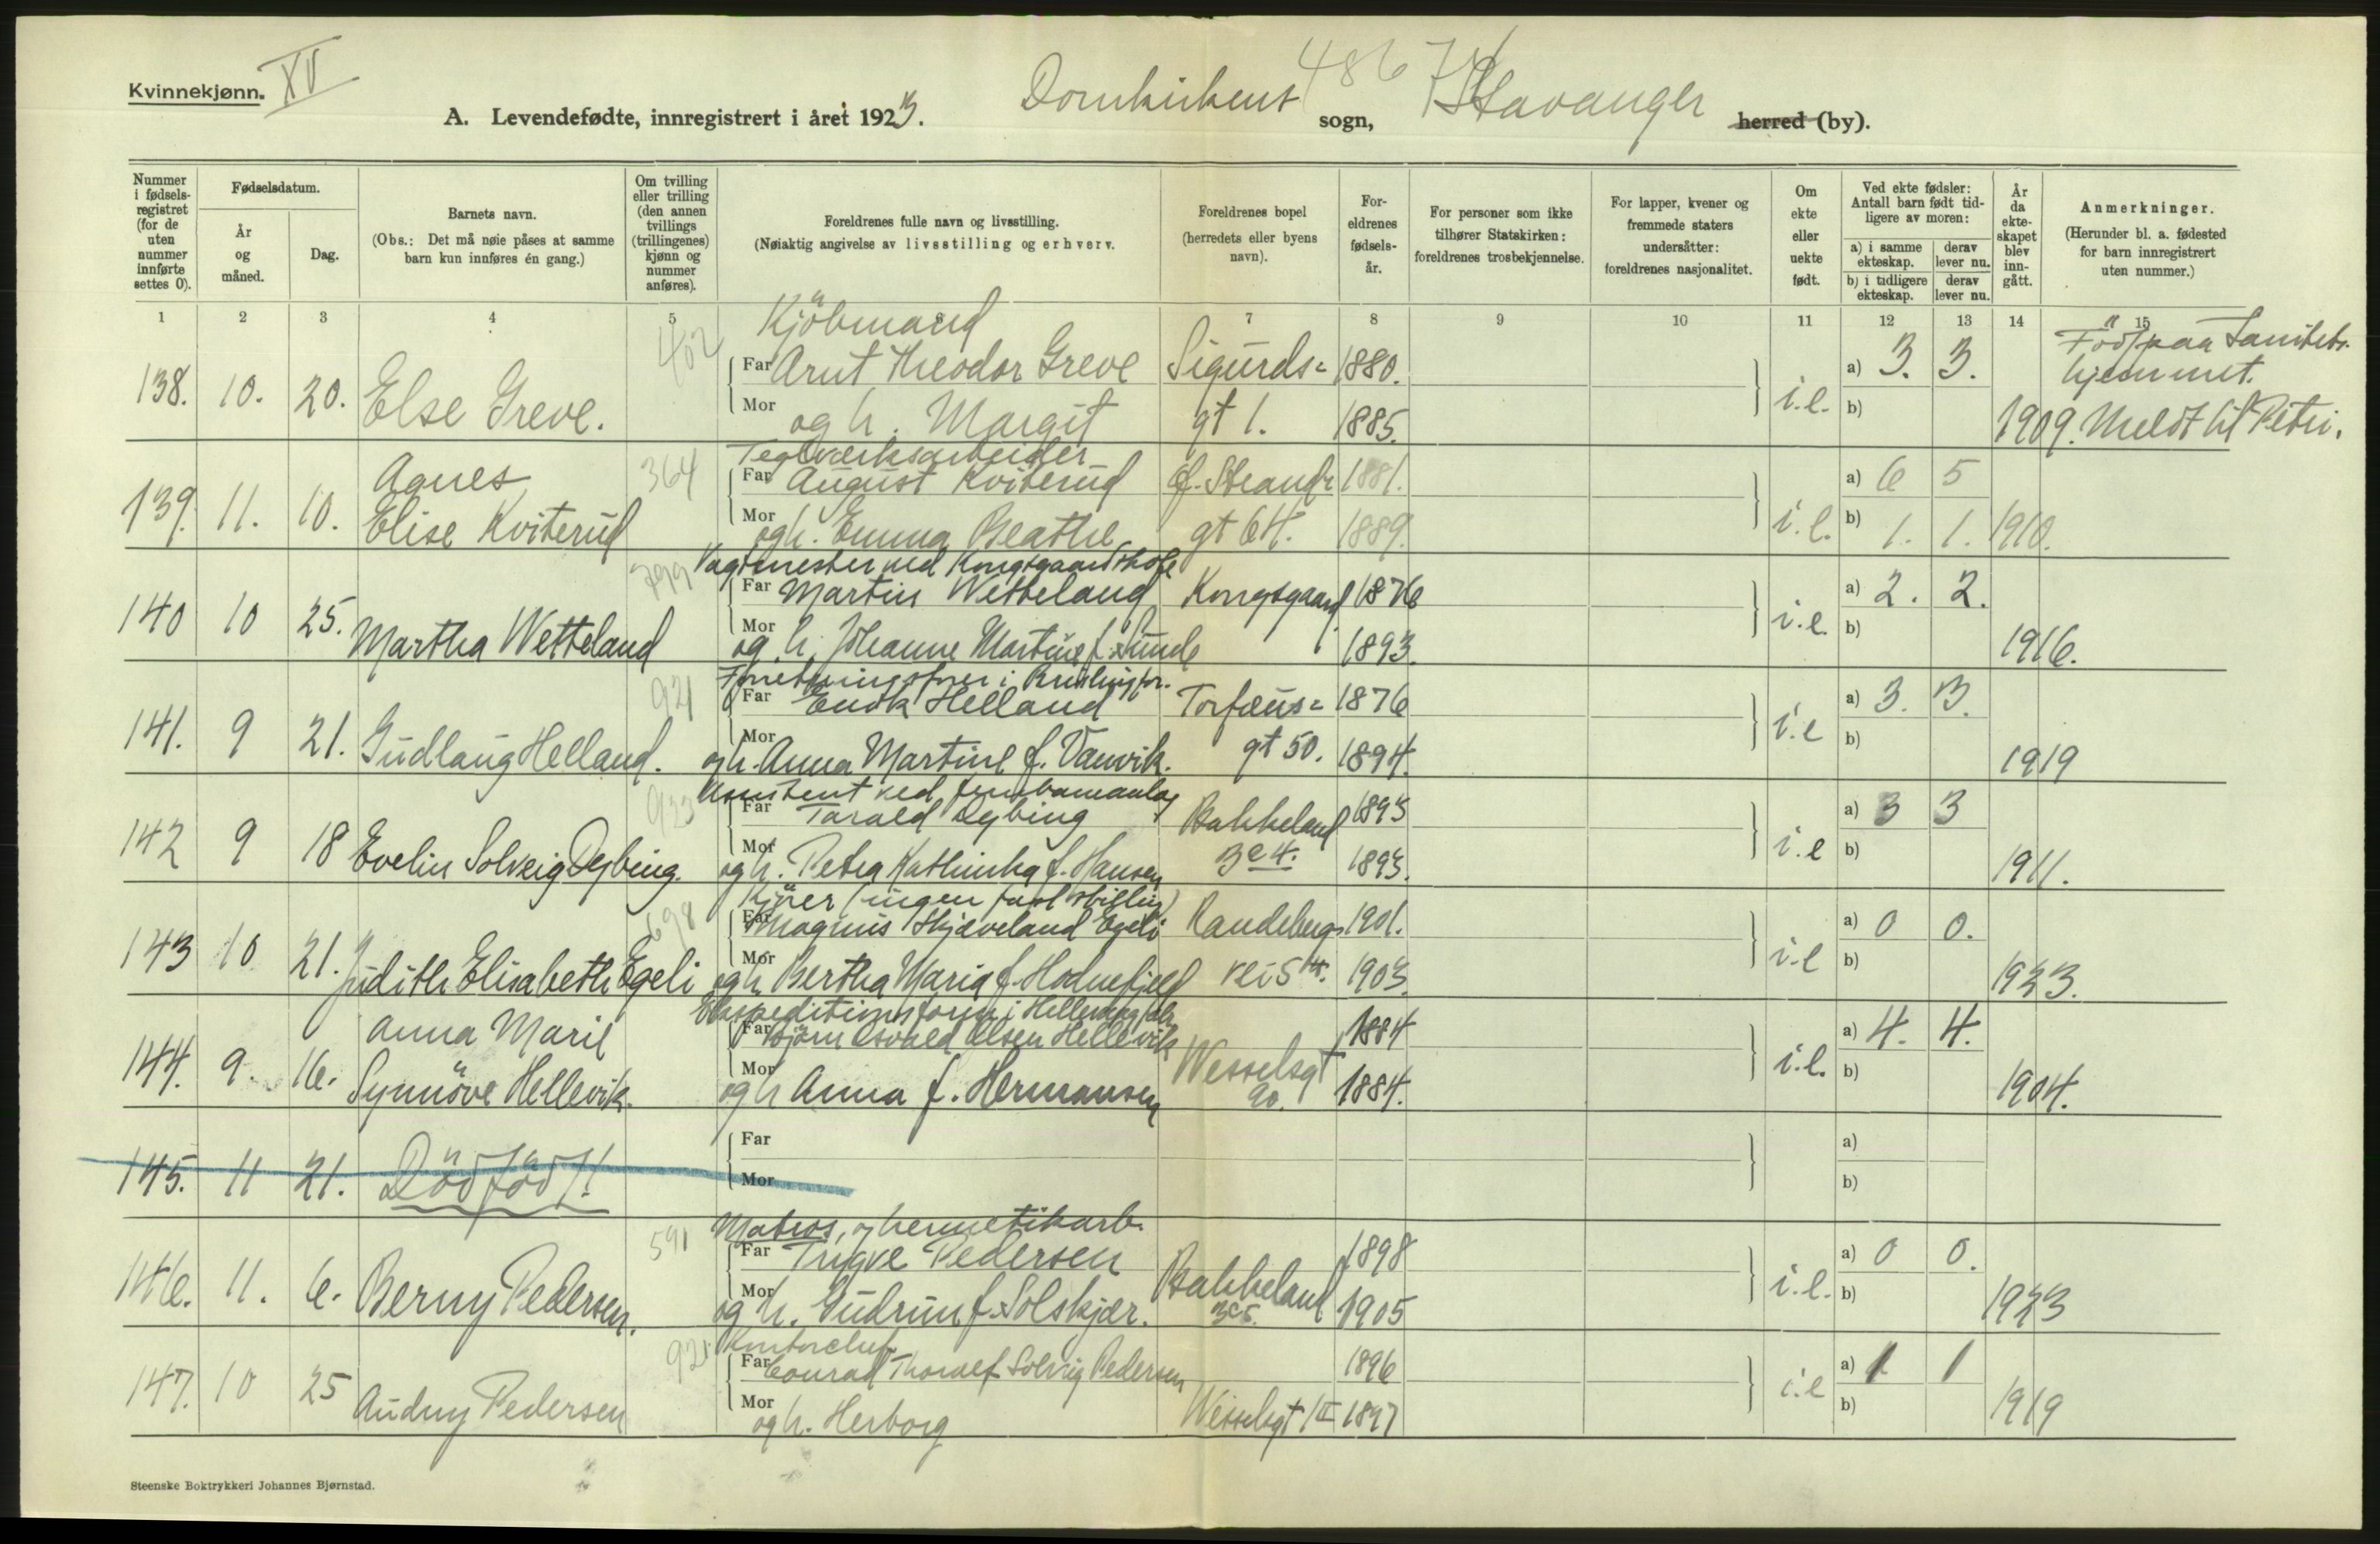 Kvinnekjønn. XV
4867
A. Levendefødte, innregistrert i året 1923. Domkirkens sogn, Stavanger herred (by).
Nummer i fødselsregistret (for de uten nummer innførte settes 0).
Fødselsdatum.
År og måned.
Dag.
Barnets navn.
(Obs.: Det må nøie påses at samme barn kun innføres én gang.)
Om tvilling eller trilling (den annen tvillings (trillingenes) kjønn og nummer anføres).
Foreldrenes fulle navn og livsstilling.
(Nøiaktig angivelse av livsstilling og erhverv.
Foreldrenes bopel (herredets eller byens navn).
Foreldrenes fødselsår.
For personer som ikke tilhører Statskirken: foreldrenes trosbekjennelse.
For lapper, kvener og fremmede staters undersåtter: foreldrenes nasjonalitet.
Om ekte eller uekte født.
Ved ekte fødsler: Antall barn født tidligere av moren:
a) i samme ekteskap. derav lever nu.
b) i tidligere ekteskap. derav lever nu.
År da ekteskapet blev inngått.
Anmerkninger.
(Herunder bl. a. fødested for barn innregistrert uten nummer.)
1 2 3 4 5 6 7 8 9 10 11 12 13 14 15
402 Kjöbmand
138. 10. 20. Else Greve. Far Arnt Theodor Greve Sigurds= 1880. i.e. a) 3. 3. Föd paa Sanitets-
hjemmet.
Mor og h. Margit gt 1. 1885. b) 1909. Meldt til Petri.
364 Teglverksarbeider
139. 11. 10. Agnes Far August Kviterud Ø. Strand= 1881. i.e. a) 6 5
Elise Kviterud Mor og h. Emma Beathe gt 64. 1889. b) 1. 1. 1910.
799 Vagtmester ved Kongsgaard skole
140 10 25. Martha Wetteland Far Martin Wetteland Kongsgaard 1876 i.e. a) 2. 2.
Mor og h. Johanne Martine f. Sunde 1893. b) 1916.
921 Forretningsfører i
141. 9 21. Gudlaug Helland. Far Enok Helland Torfæus= 1876 i.e a) 3. 3.
Mor og h. Anna Martine f. Vanvik. gt 50. 1894. b) 1919
933 Assistent ved jernbaneanlæg
142 9 18 Evelin Solveig Dybing. Far Tarald Dybing Bakkeland 1893 i.e a) 3 3
Mor og h. Petra Kathinka f. Hansen 3e 4. 1893. b) 1911.
698 Kjörer (ingen fast stilling)
143 10 21. Judith Elisabeth Egeli Far Magnus Skjæveland Egeli Randebergs 1901. i.e a) 0 0.
Mor og h. Bertha Maria f. Hodnefjeld vei 54. 1903. b) 1923.
Ekspeditionsforn i
144. 9. 16. Anna Marie Far Bjarn Osvald Olsen Hellevik 1884 i.e. a) 4. 4.
Synnöve Hellevik. Mor og h Anna f. Hermansen Wesselsgt 20. 1884. b) 1904.
145. 11 21. Dödfödt! Far a)
Mor b)
591 Matros, og hermetikarb.
146. 11. 6. Berny Pedersen. Far Trygve Pedersen Bakkeland 1898 i.e. a) 0 0.
Mor og h. Gudrun f. Solskjær. 3e 5. 1905 b) 1923
921 Kontorchef.
147. 10 25 Audny Pedersen Far Conrad Thoralf Solvig Pedersen 1896 i.e a) 1 1
Mor og h. Herborg Wesselsgt 1 II 1897 b) 1919
Steenske Boktrykkeri Johannes Bjørnstad.